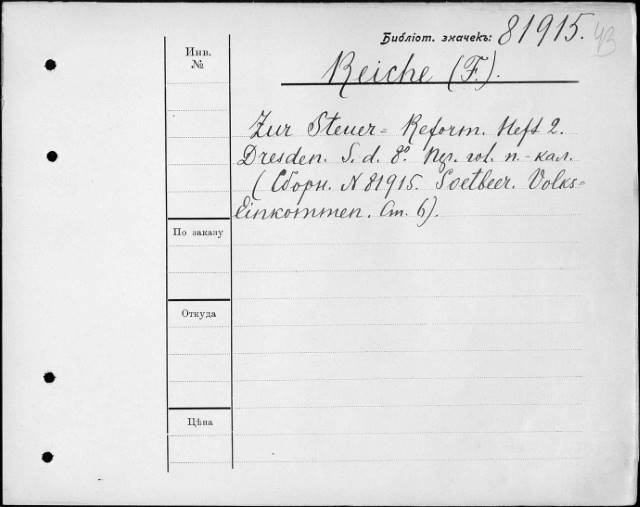 Библіот. значекъ: 81915.
43
Инв.
№
Reiche (F.).
Zur Steuer= Reform. Heft 2.
Dresden. S. d. 8º. п.-кал.
(Сборн. N 81915. Soetbeer. Volks=
Einkommen. Ст. 6).
По заказу
Откуда
Цѣна